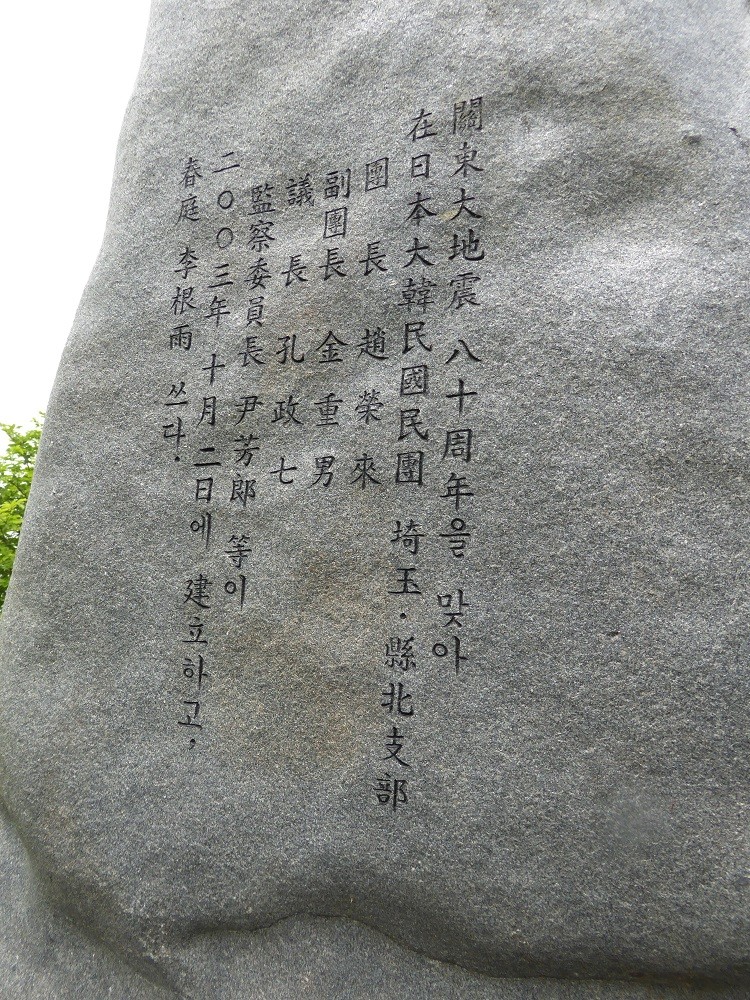 關東大地震 八十周年을 맞아
在日本大韓民國民團 埼玉·縣北支部
團長 趙榮來
副團長 金重男
議長 孔政七
監察委員長 尹芳郞 等이
二〇〇三年 十月 二日에 建立하고,
春庭 李根雨 쓰다.